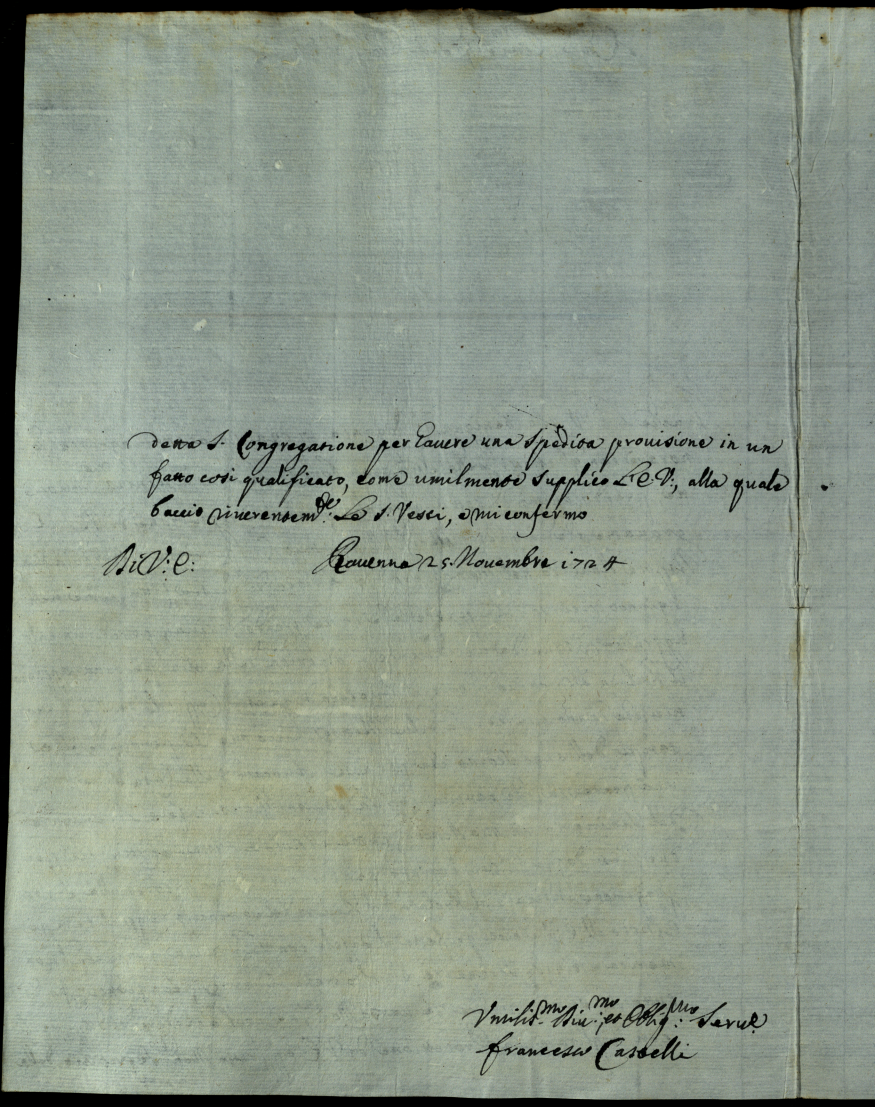 detta S. Congregatione per hauere una spedita prouisione in un
fatto cosi qualificato, come umilmente supplico L'E V:, alla quale
baccio riuerentem:te Le S. Vesti, e mi confermo
Di V: E: Rauenna 25. Nouembre 1724
Vmilis:mo Diu:mo, et Obblig:mo Seru:e
Francesco Castelli